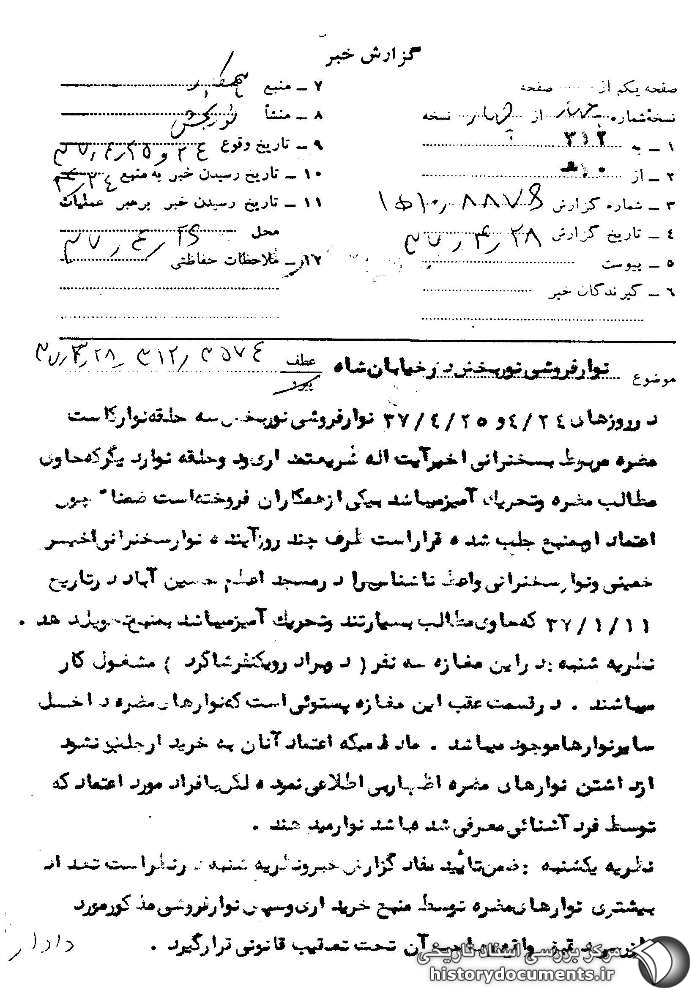 گزارش خبر
صفحه یکم از صفحه
نسخه شماره چهار از چهار نسخه
۱ ـ به ۳۱۲
۲ ـ از
۳ ـ شماره گزارش
۴ ـ تاریخ گزارش ۳۷٫۴٫۲۸
۵ ـ پیوست
۶ ـ گیرندگان خبر
۷ ـ منبع همکار
۸ ـ منشأ نوربخش
۹ ـ تاریخ وقوع ۲۴ و ۳۷٫۴٫۲۵
۱۰ ـ تاریخ رسیدن خبر به منبع
۱۱ ـ تاریخ رسیدن خبر برهبر عملیات
محل ۳۷٫۴٫۲۶
۱۲ ـ ملاحظات حفاظتی
موضوع نوارفروشی نوربخش در خیابان شاه
عطف
پیرو
در روزهای ۴/۲۴ و ۳۷/۴/۲۵ نوارفروشی نوربخش سه حلقه نوار کاست
مضره مربوط بسخنرانی اخیر آیت اله شریعتمداری و دو حلقه نوار دیگر که حاوی
مطالب مضره و تحریک آمیز میباشد بیکی از همکاران فروخته است ضمنا" چون
اعتماد او بمنبع جلب شده قرار است ظرف چند روز آینده نوار سخنرانی اخیر
خمینی و نوار سخنرانی واعظ ناشناسی را در مسجد اعظم حسین آباد در تاریخ
۳۷/۱/۱۱ که حاوی مطالب بسیار تند و تحریک آمیز میباشد بمنبع تحویل دهد .
نظریه شنبه : در این مغازه سه نفر ( دو برادر و یکنفر شاگرد ) مشغول کار
میباشند . در قسمت عقب این مغازه پستوئی است که نوارهای مضره داخل
سایر نوارها موجود میباشد . مادامیکه اعتماد آنان به خریدار جلب نشود
از داشتن نوارهای مضره اظهار بی اطلاعی نموده لکن بافراد مورد اعتماد که
توسط فرد آشنائی معرفی شده باشد نوار میدهند .
نظریه یکشنبه : ضمن تأیید مفاد گزارش خبر و نظریه شنبه در نظر است تعداد
بیشتری نوارهای مضره توسط منبع خریداری و سپس نوارفروشی مذکور مورد
آن تحت تعقیب قانونی قرار گیرد .
مرکز بررسی اسناد تاریخی
historydocuments.ir